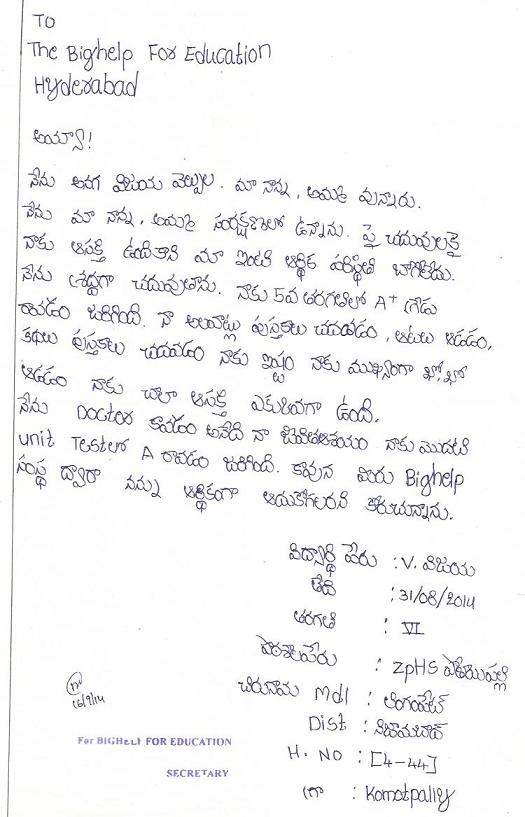 TO
The Bighelp For Education
Hyderabad
అయ్యా!
నేను అనగా విజయ వెల్పుల. మా నాన్న, అమ్మ వున్నారు.
నేను మా నాన్న, అమ్మ సంరక్షణలో ఉన్నాను. పై చదువులకై
నాకు ఆసక్తి ఉందికాని మా ఇంటి ఆర్థిక పరిస్థితి బాగోలేదు.
నేను శ్రద్ధగా చదువుతాను. నాకు 5వ తరగతిలో A+ గ్రేడు
రావడం జరిగింది. నా అలవాట్లు పుస్తకాలు చదవడం, ఆటలు ఆడడం,
కథలు పుస్తకాలు చదవడం నాకు ఇష్టం నాకు ముఖ్యంగా ఖో,ఖో
ఆడడం నాకు చాలా ఆసక్తి ఎక్కువగా ఉంది.
నేను Doctor కావడం అనేది నా జీవితాశయం నాకు మొదటి
unit Testలో A రావడం జరిగింది. కావున మీరు Bighelp
సంస్థ ద్వారా నన్ను ఆర్థికంగా ఆదుకోగలరని కోరుచున్నాను.
విద్యార్థి పేరు : V. విజయ
తేది : 31/08/2014
తరగతి : VI
పాఠశాలపేరు : ZPHS పోతాయిపల్లి
చిరునామ Mdl : లింగంపేట్
Dist : నిజామబాద్
H. NO : [4-44]
గ్రా : Komatpally
16/9/14
For BIGHELP FOR EDUCATION
SECRETARY